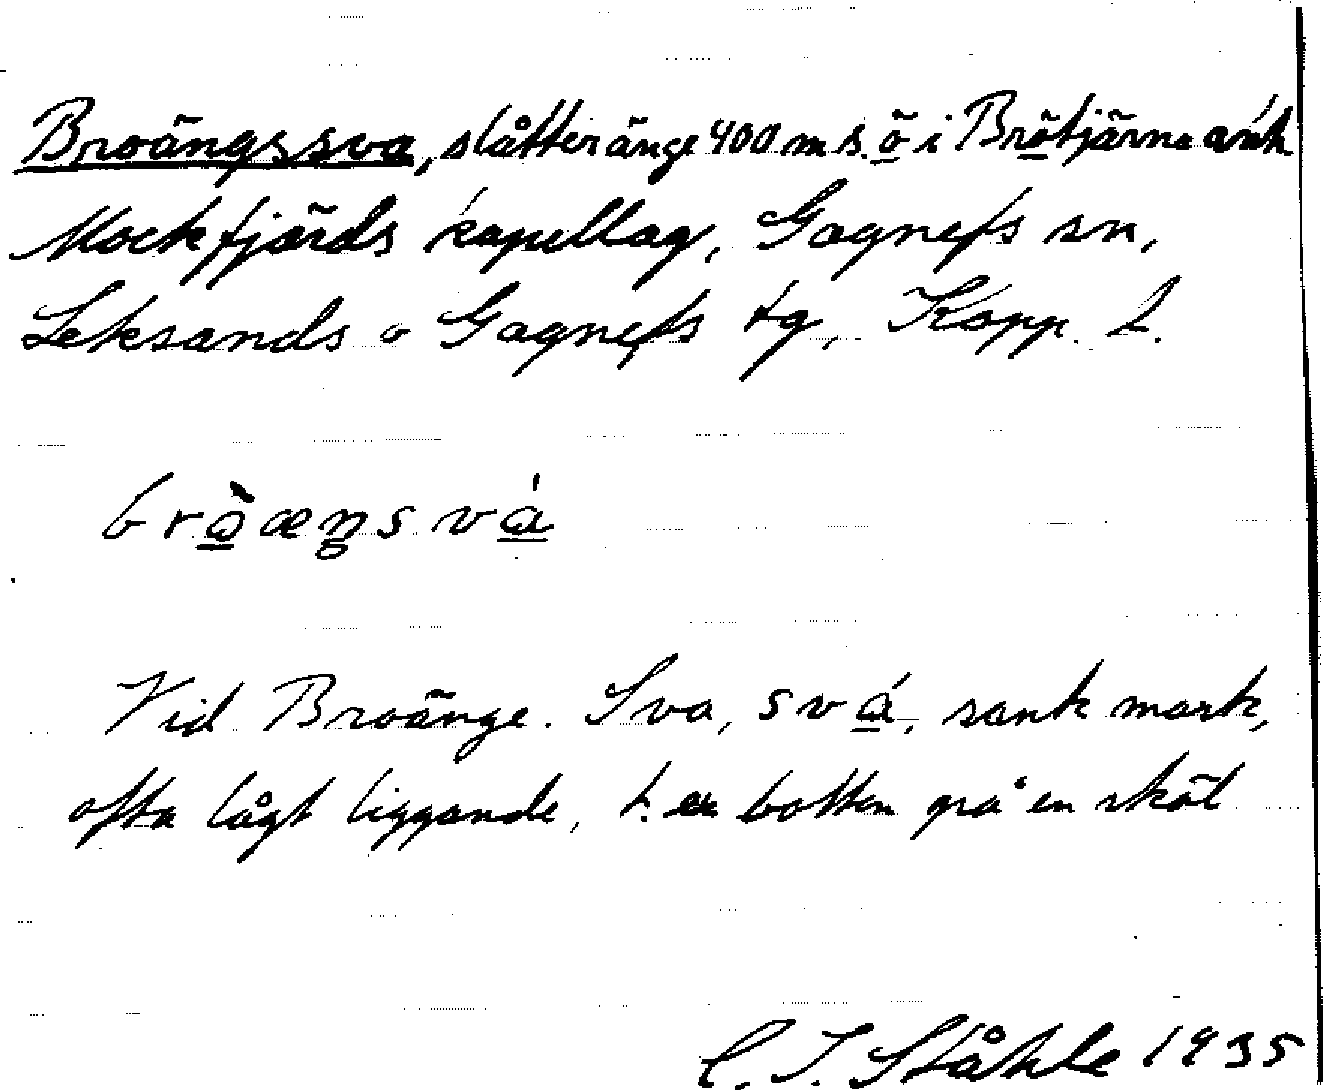 Broängssva, slåtteränge 400 m s. ö i Brötjärna
Mockfjärds kapellag, Gagnefs sn,
Leksands o Gagnefs tg, Kopp. l.
bròæŋsvá
Vid Broänge. Sva, svá, sank mark,
ofta lågt liggande, t. ex botten på en skål
C. I. Ståhle 1935